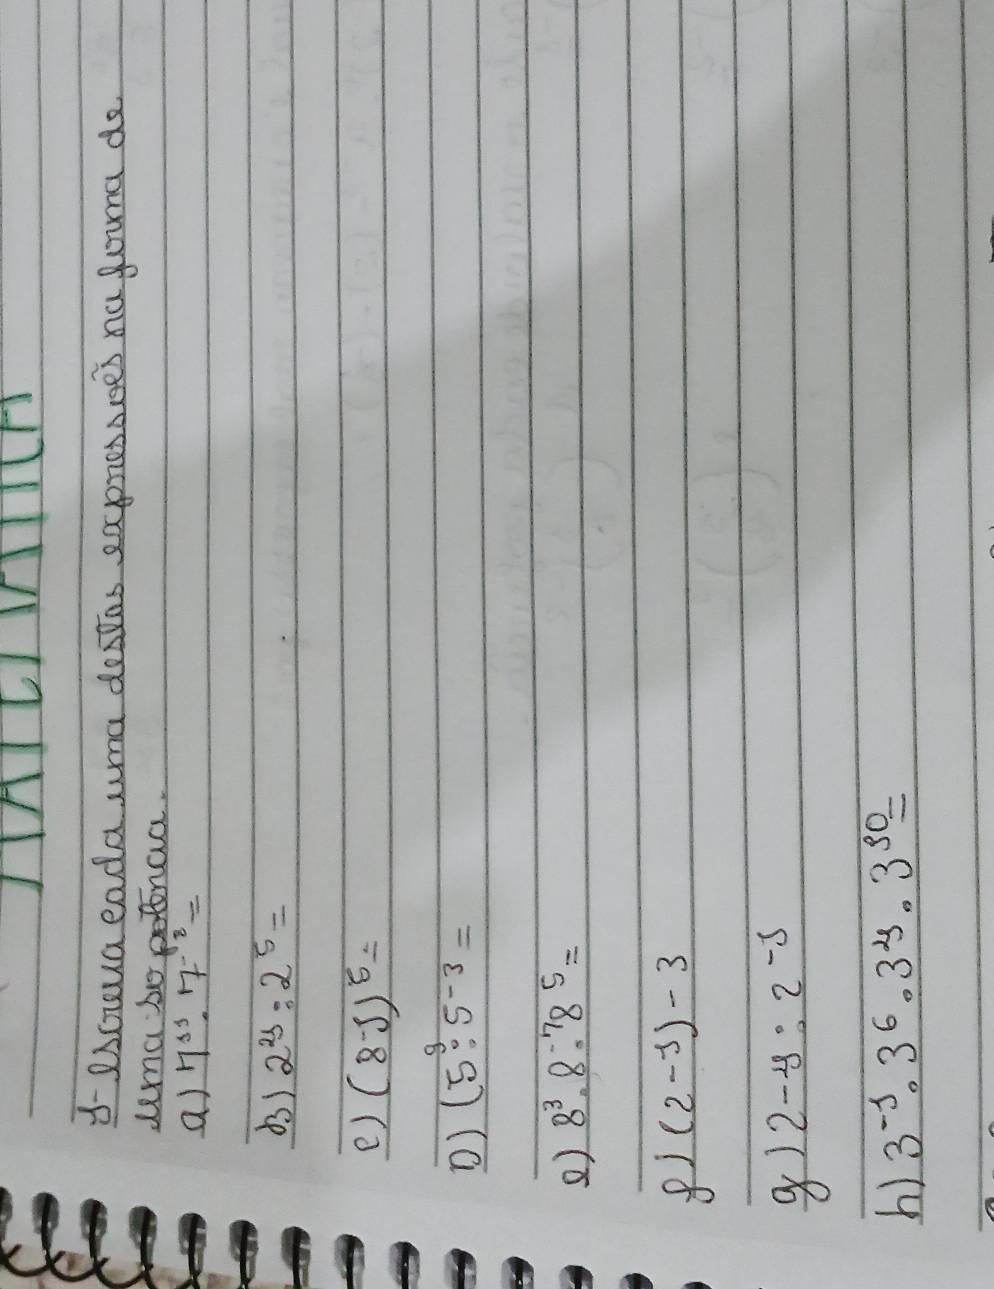 MATEMÁTICA
1- Escreva cada uma destas expressões na forma de
uma só potência.
a) 7¹¹ . 7⁻² =
b) 2⁴ : 2⁵ =
c) (8-1)⁵ =
D) (5⁹ : 5⁻³ =
e) 8³ . 8⁻⁷ : 8⁵ =
f) (2-1)-3
g) 2-4 : 2⁻¹
h) 3⁻¹ . 36 . 3⁴ . 3¹⁰ =